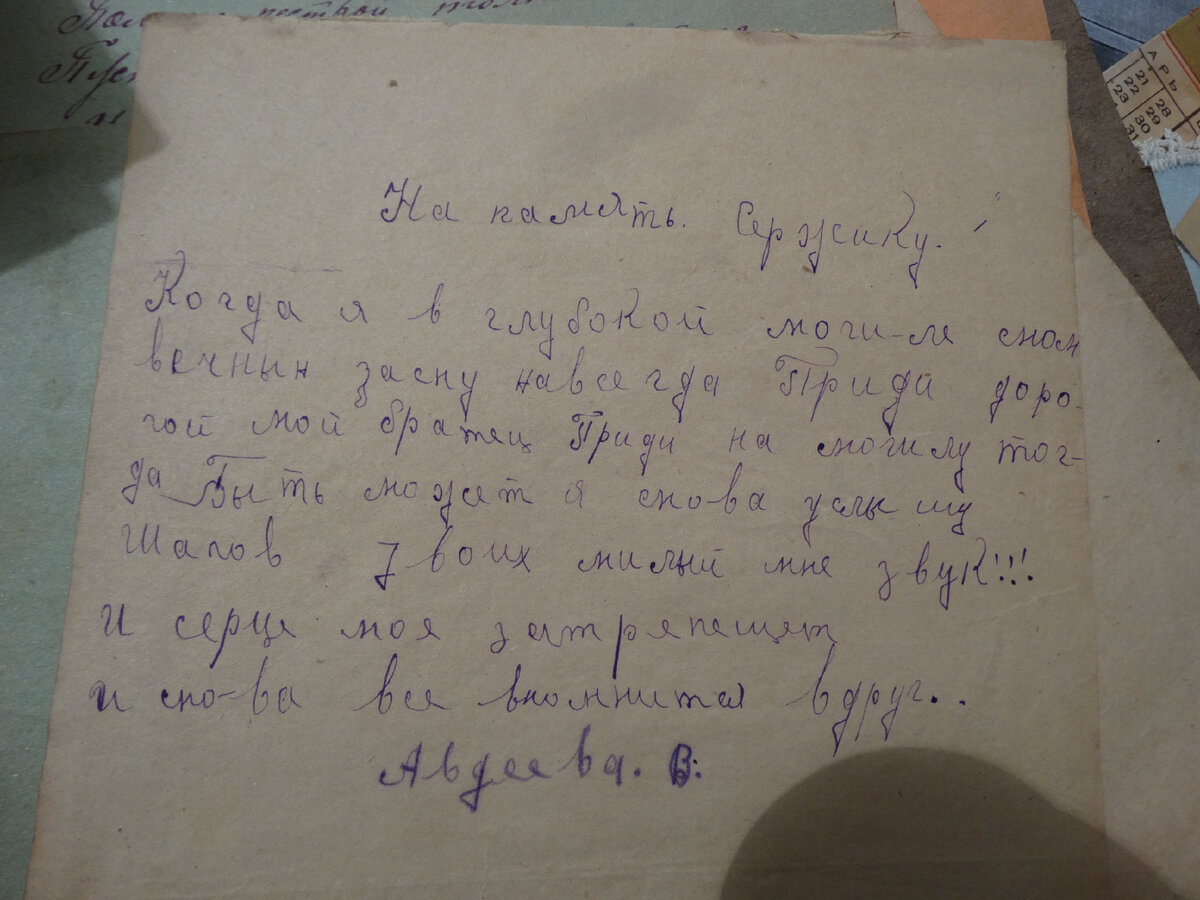 Пол пестрой толп
Пуст
и
А Р Ь
21 28
22 29
23 30
31
На память. Сержику.
Когда я в глубокой моги-ле сном
вечным засну навсегда Приди доро-
гой мой братец Приди на могилу тог-
да Быть может я снова услышу
Шагов твоих милый мне звук!!!
И серце моя затряпещет
и сно-ва все вномнится вдруг..
Авдеева. В.